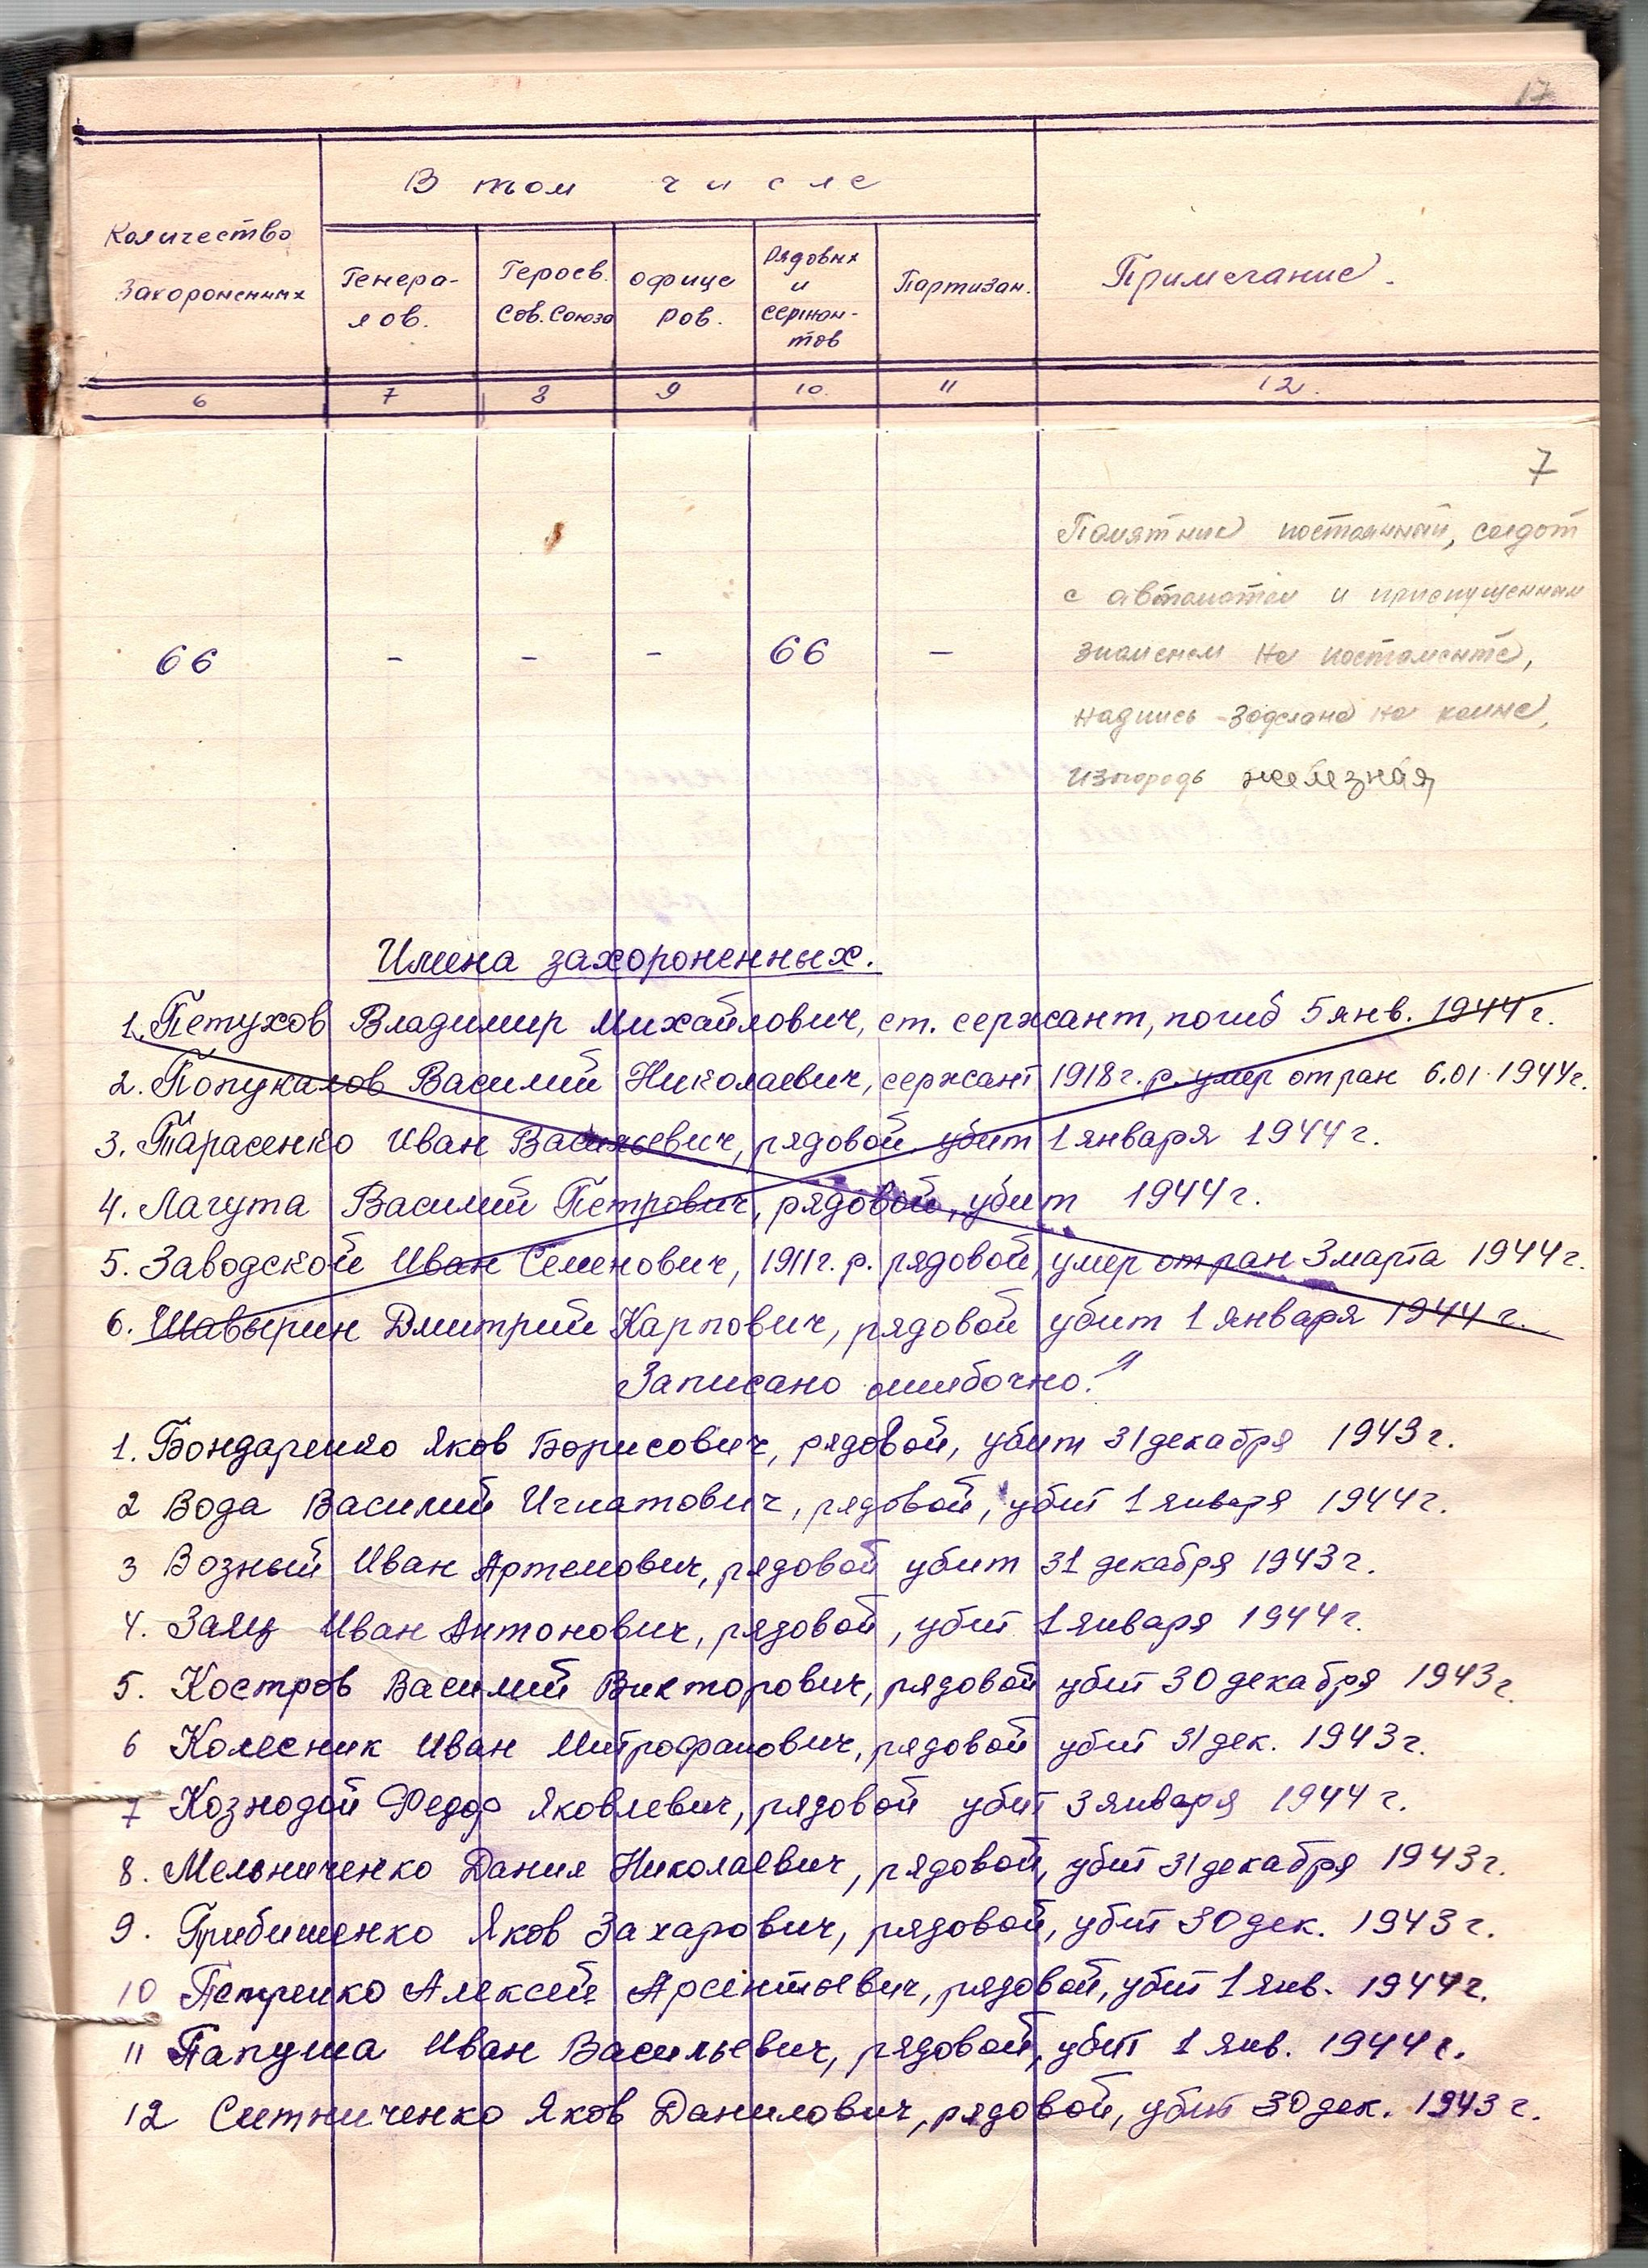 17
В том числе
Количество
Захороненных
Генера-
лов.
Героев.
Сов. Союза
офице
ров.
Рядовых
и
сержан-
тов
Партизан.
Примечание.
6 7 8 9 10. 11 12.
7
Памятник постоянный, солдат
с автоматом и приспущенным
знаменем на постаменте,
надпись сделана на камне,
изгородь железная
66 - - - 66 -
Имена захороненных.
1. Петухов Владимир Михайлович, ст. сержант, погиб 5 янв. 1944 г.
2. Попукалов Василий Николаевич, сержант 1918 г. р. умер от ран 6.01.1944 г.
3. Тарасенко Иван Васильевич, рядовой, убит 1 января 1944 г.
4. Лагута Василий Петрович, рядовой, убит 1944 г.
5. Заводской Иван Семенович, 1911 г. р. рядовой, умер от ран 3 марта 1944 г.
6. Шавырин Дмитрий Карпович, рядовой убит 1 января 1944 г.
Записано ошибочно!"
1. Бондаренко Яков Борисович, рядовой, убит 31 декабря 1943 г.
2 Вода Василий Игнатович, рядовой, убит 1 января 1944 г.
3 Возный Иван Артемович, рядовой убит 31 декабря 1943 г.
4. Заяц Иван Антонович, рядовой, убит 1 января 1944 г.
5. Костров Василий Викторович, рядовой убит 30 декабря 1943 г.
6 Колесник Иван Митрофанович, рядовой убит 31 дек. 1943 г.
7 Кознодой Федор Яковлевич, рядовой убит 3 января 1944 г.
8. Мельниченко Данил Николаевич, рядовой, убит 31 декабря 1943 г.
9. Грибишенко Яков Захарович, рядовой, убит 30 дек. 1943 г.
10 Петренко Алексей Арсентьевич, рядовой, убит 1 янв. 1944 г.
11 Папуша Иван Васильевич, рядовой, убит 1 янв. 1944 г.
12 Ситниченко Яков Данилович, рядовой, убит 30 дек. 1943 г.